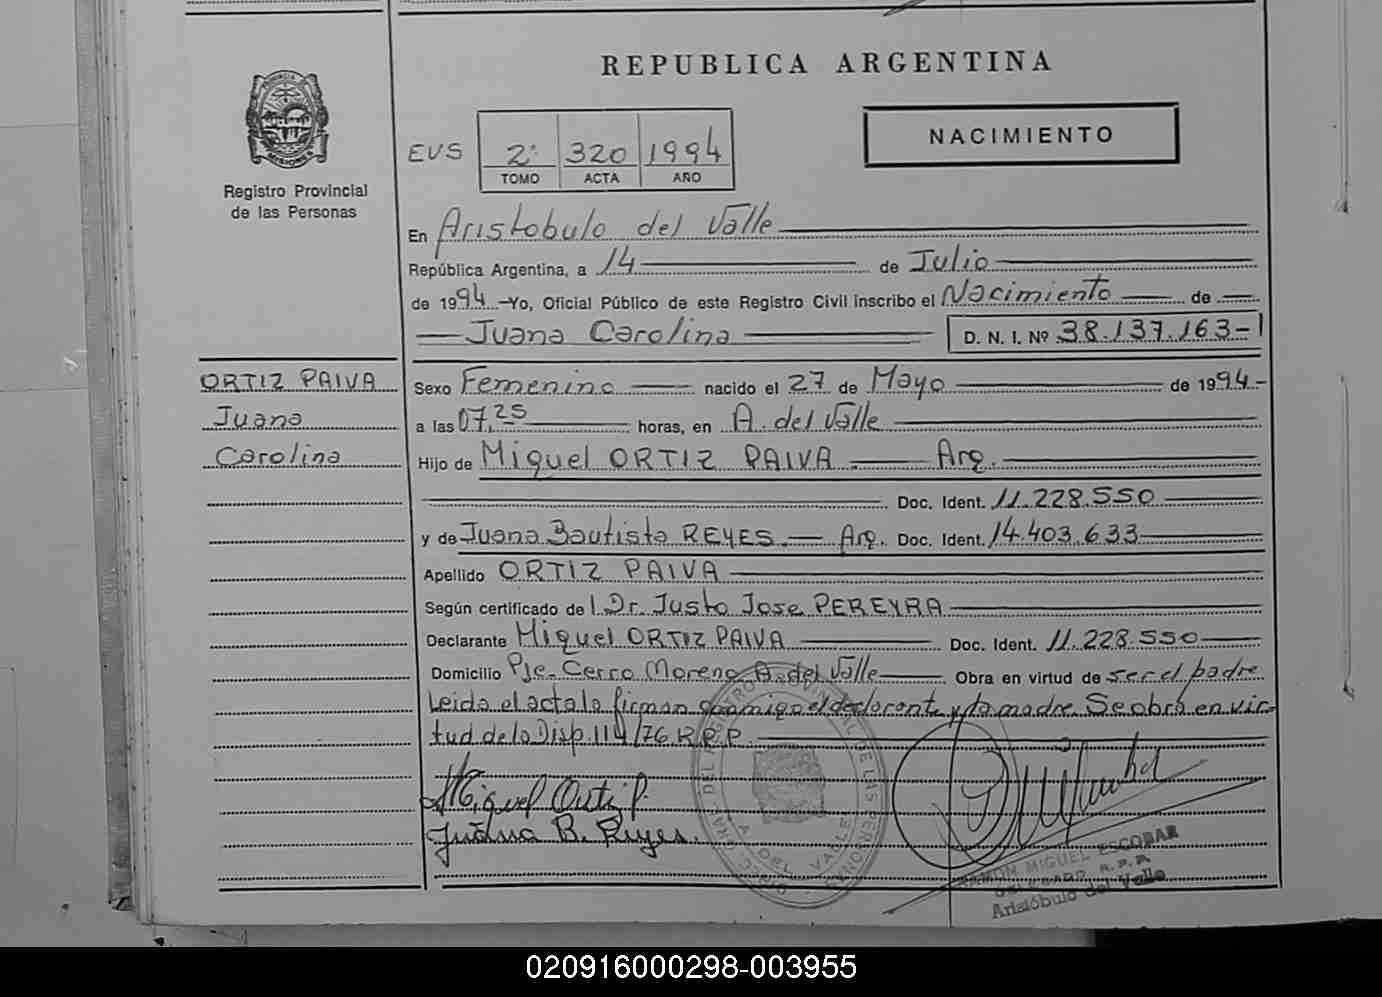 REPUBLICA ARGENTINA
PROVINCIA DE MISIONES
Registro Provincial
de las Personas
EVS 2º 320 1994
TOMO ACTA AÑO
NACIMIENTO
En Aristobulo del Valle
República Argentina, a 14 de Julio
de 1994 —Yo, Oficial Público de este Registro Civil inscribo el Nacimiento de
Juana Carolina D. N. I. Nº 38.137.163-
ORTIZ PAIVA
Juana
Carolina
Sexo Femenino nacido el 27 de Mayo de 1994-
a las 07,25 horas, en A. del Valle
Hijo de Miguel ORTIZ PAIVA. Arg.
Doc. Ident. 11.228.550
y de Juana Bautista REYES. Arg. Doc. Ident. 14.403.633
Apellido ORTIZ PAIVA
Según certificado del Dr. Justo Jose PEREYRA
Declarante Miguel ORTIZ PAIVA Doc. Ident. 11.228.550
Domicilio Pje. Cerro Moreno A. del Valle Obra en virtud de ser el padre
Leida el acta la firman conmigo el declarante y la madre. Se obra en vir-
tud de la Disp. 114/76 R.P.P.
Miguel Ortiz P.
Juana B. Reyes.
RAMON MIGUEL ESCOBAR
DELEGADO R.P.P.
Aristóbulo del Valle
020916000298-003955